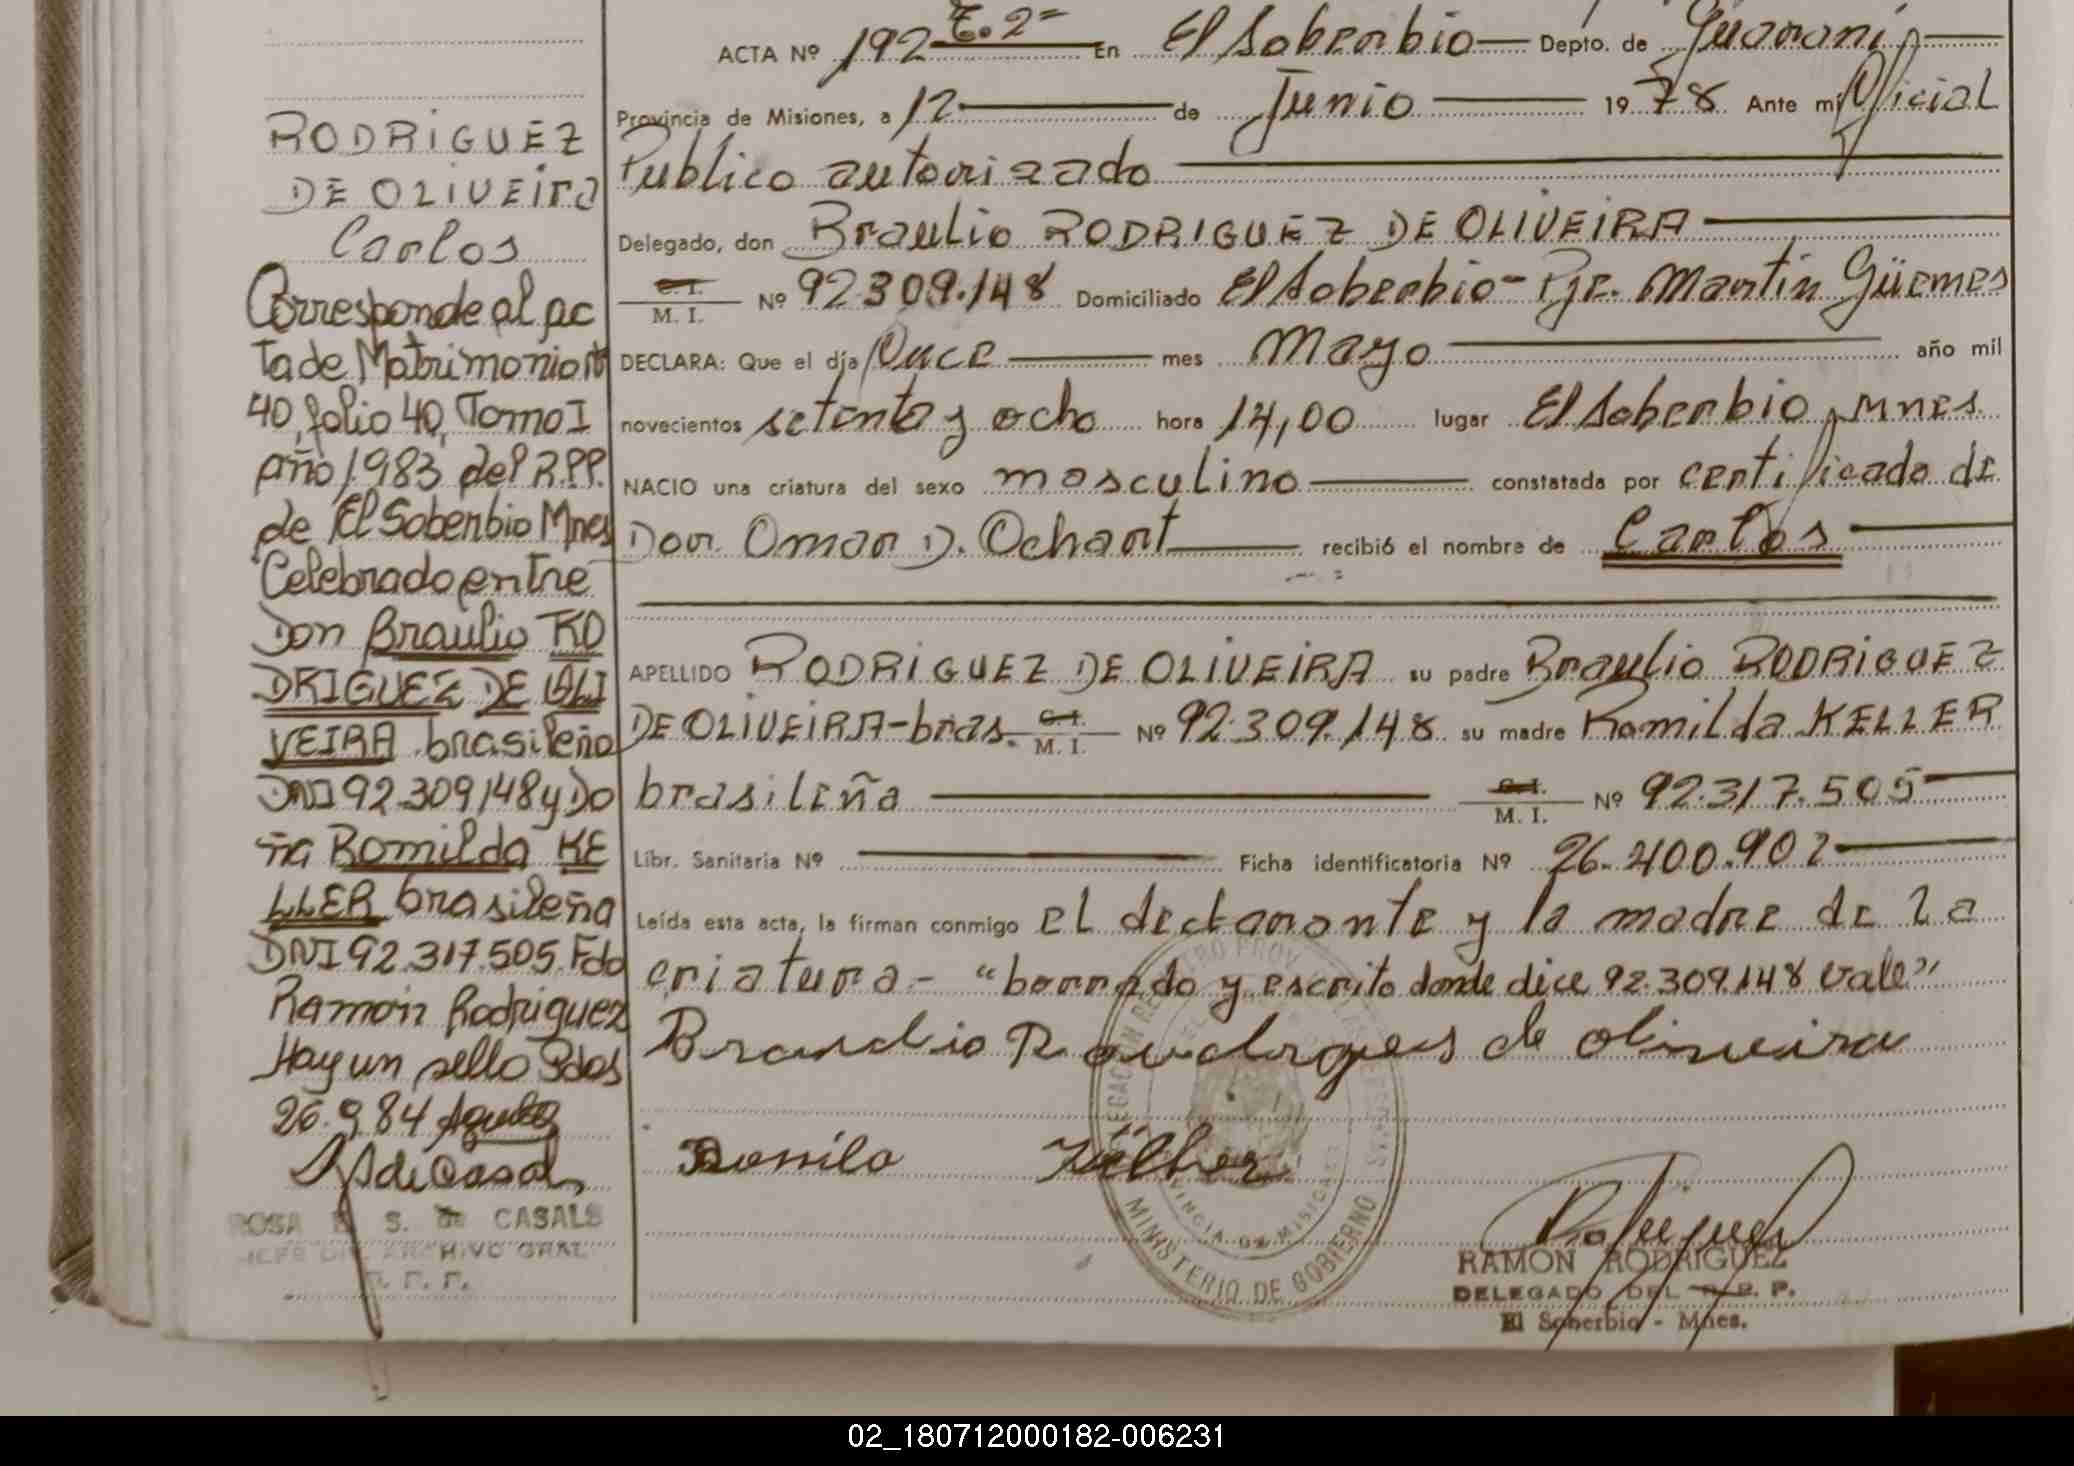 RODRIGUEZ
DE OLIVEIRA
Carlos
Corresponde al ac
ta de Matrimonio Nº
40, folio 40, Tomo I
año 1983 del R.P.P.
de El Soberbio Mnes
Celebrado entre
Don Braulio RO
DRIGUEZ DE OLI
VEIRA brasileño
DNI 92.309148 y Do
ña Romilda KE
LLER brasileña
DNI 92.317.505. Fdo
Ramón Rodriguez
Hay un sello Pdas
26.9.84
ROSA E. S. de CASALS
JEFE DEL ARCHIVO GRAL
R. P. P.
ACTA Nº 192 T. 2º En El Soberbio Depto. de Guaraní
Provincia de Misiones, a 12 de Junio 1978 Ante mí Oficial
Publico autorizado
Delegado, don Braulio RODRIGUEZ DE OLIVEIRA
C. I.
M. I. Nº 92.309.148 Domiciliado El Soberbio - Pje. Martín Güemes
DECLARA: Que el día Once mes Mayo año mil
novecientos setenta y ocho hora 14,00 lugar El Soberbio, Mnes.
NACIO una criatura del sexo masculino constatada por certificado de
Dor. Omar D. Ochart recibió el nombre de Carlos
APELLIDO RODRIGUEZ DE OLIVEIRA su padre Braulio RODRIGUEZ
DE OLIVEIRA-bras. C. I. M. I. Nº 92.309.148 su madre Romilda KELLER
brasileña C. I. M. I. Nº 92.317.505
Libr. Sanitaria Nº Ficha identificatoria Nº 26.400.902
Leída esta acta, la firman conmigo el declarante y la madre de la
criatura.- "borrado y escrito donde dice 92.309.148 vale"
Braulio Roudrgues de olinveira
Romilo Kélher
MINISTERIO DE GOBIERNO
RAMON RODRIGUEZ
DELEGADO DEL R. P. P.
El Soberbio - Mnes.
02_180712000182-006231